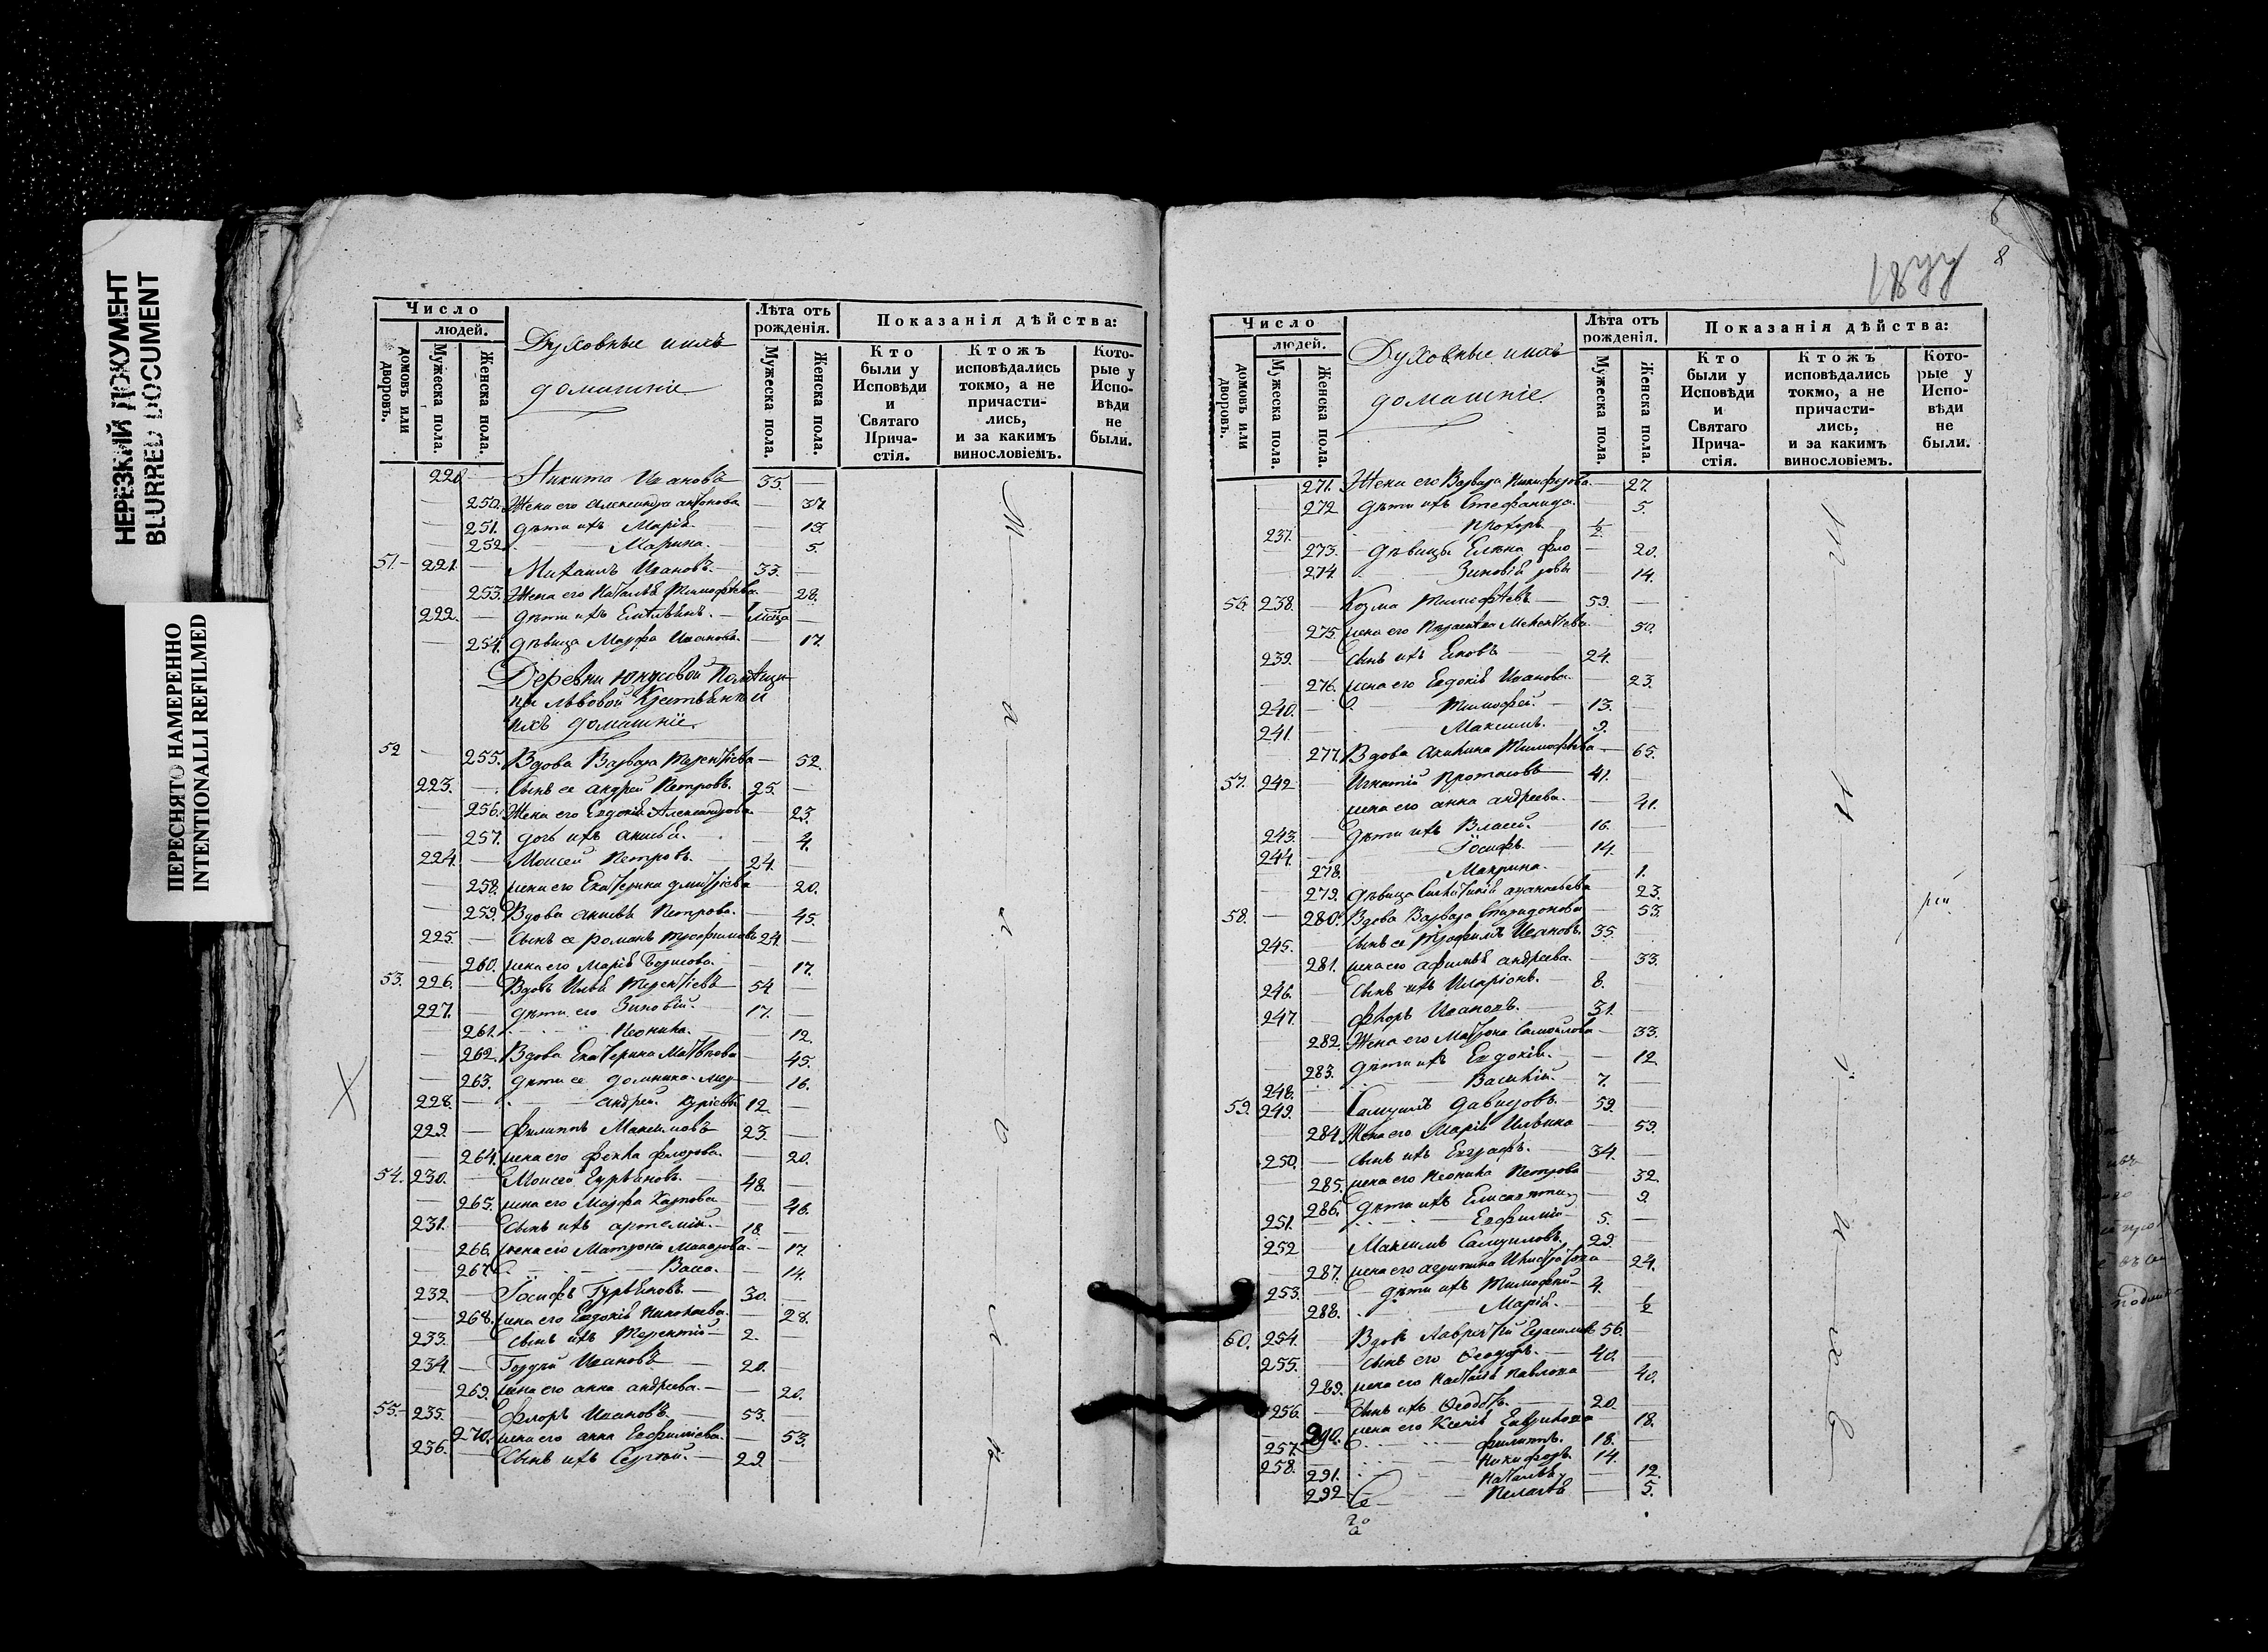 НЕРЕЗКИЙ ДОКУМЕНТ
BLURRED DOCUMENT
ПЕРЕСНЯТО НАМЕРЕННО
INTENTIONALLI REFILMED
Число
людей.
домовъ или дворовъ.
Мужеска пола.
Женска пола.
Духовные ихъ
домашніе
Лѣта отъ рожденія.
Мужеска пола.
Женска пола.
Показанія дѣйства:
Кто были у Исповѣди и Святаго Прича-стія.
Ктожъ исповѣдались токмо, а не причасти-лись, и за какимъ винословіемъ.
Кото-рые у Испо-вѣди не были.
220 Никита Ивановъ 35.
250. Жена его Александра Антонова 37
251. дѣти ихъ Марія 13
252. Марина 5.
51. 221. Михаилъ Ивановъ 33.
253. Жена его Наталья Тимофѣева 28.
222. дѣти ихъ Емельянъ
254. дѣвица Марфа Иванова 17.
Деревни Юнусовой Помѣщи-
цы Львовой Крестьяне и
ихъ домашніе
52 255. Вдова Варвара Терентіева 52.
223. Сынъ ея Андрей Петровъ 25.
256. Жена его Евдокія Александрова 23.
257. дочь ихъ Анисья 4.
224. Моисей Петровъ 24.
258. жена его Екатерина Дмитріева 20.
259. Вдова Анисья Петрова 45.
225. Сынъ ея Романъ Трофимовъ 24.
260. жена его Марія Борисова 17.
53. 226. Вдовъ Илья Терентіевъ 54
227. дѣти его Зиновій 17.
261. Леонила 12.
262. Вдова Екатерина Матвѣева 45.
263. дѣти ея Домника 16.
228. Андрей 12.
229. Филиппъ Максимовъ 23.
264. жена его Фекла Флорова 20.
54. 230. Моисей Гурьяновъ 48.
265. жена его Марфа Карпова 46.
231. Сынъ ихъ Артемій 18.
266. жена его Матрона Макарова 17.
267. Васса 14.
232 Іосифъ Гурьяновъ 30.
268. жена его Евдокія Николаева 28.
233. Сынъ ихъ Терентій 2.
234. Гордей Ивановъ 20.
269. жена его Анна Андреева 20.
55. 235. Флоръ Ивановъ 53.
270. жена его Анна Евфиміева 53.
236. Сынъ ихъ Сергей 29.
8
Число
людей.
домовъ или дворовъ.
Мужеска пола.
Женска пола.
Духовные ихъ
домашніе
Лѣта отъ рожденія.
Мужеска пола.
Женска пола.
Показанія дѣйства:
Кто были у Исповѣди и Святаго Прича-стія.
Ктожъ исповѣдались токмо, а не причасти-лись, и за какимъ винословіемъ.
Кото-рые у Испо-вѣди не были.
271. Жена его Варвара Никифорова 27.
272 дѣти ихъ Стефанида 5.
237. Прохоръ ½
273. дѣвицы Елена Фло 20.
274. Зиновія рова 14.
56. 238. Козма Тимофѣевъ 59.
275. жена его 50.
239. Сынъ ихъ Іаковъ 24.
276. жена его Евдокія Иванова 23.
240. Тимофей 13.
241. Максимъ 9.
277. Вдова Акилина Тимофѣева 65.
57. 242 Игнатій Протасовъ 41.
жена его Анна Андреева 41.
243. дѣти ихъ Власій 16.
244. Іосифъ 14.
278. Макрина 1.
279. дѣвица 23.
58. 280. Вдова Варвара Спиридонова 53.
245. Сынъ ея Трофимъ Ивановъ 35.
281. жена его Афимья Андреева 33.
246. Сынъ ихъ Иларіонъ 8.
247. Флоръ Ивановъ 31.
282. Жена его Матрона Самойлова 33.
283. дѣти ихъ Евдокія 12.
248. Василій 7.
59. 249. Самуилъ Давидовъ 59.
284. Жена его Марія Ильина 59.
250. Сынъ ихъ Евграфъ 34.
285. жена его Леонила Петрова 32.
286. дѣти ихъ 9.
251. Евфимій 5.
252 Максимъ Самуиловъ 29.
287. жена его Агрипина 24.
253. дѣти ихъ Тимофей 4.
288. Марія ½
60. 254. Вдовъ Лаврентій Герасимовъ 56.
255. Сынъ его Ѳеодоръ 40.
289. жена его Наталья Павлова 40.
256. Сынъ ихъ 20.
290. жена его Ксенія Гаврилова 18.
257. Филиппъ 18.
258. Никифоръ 14.
291. Наталья 12.
292. Пелагея 5.